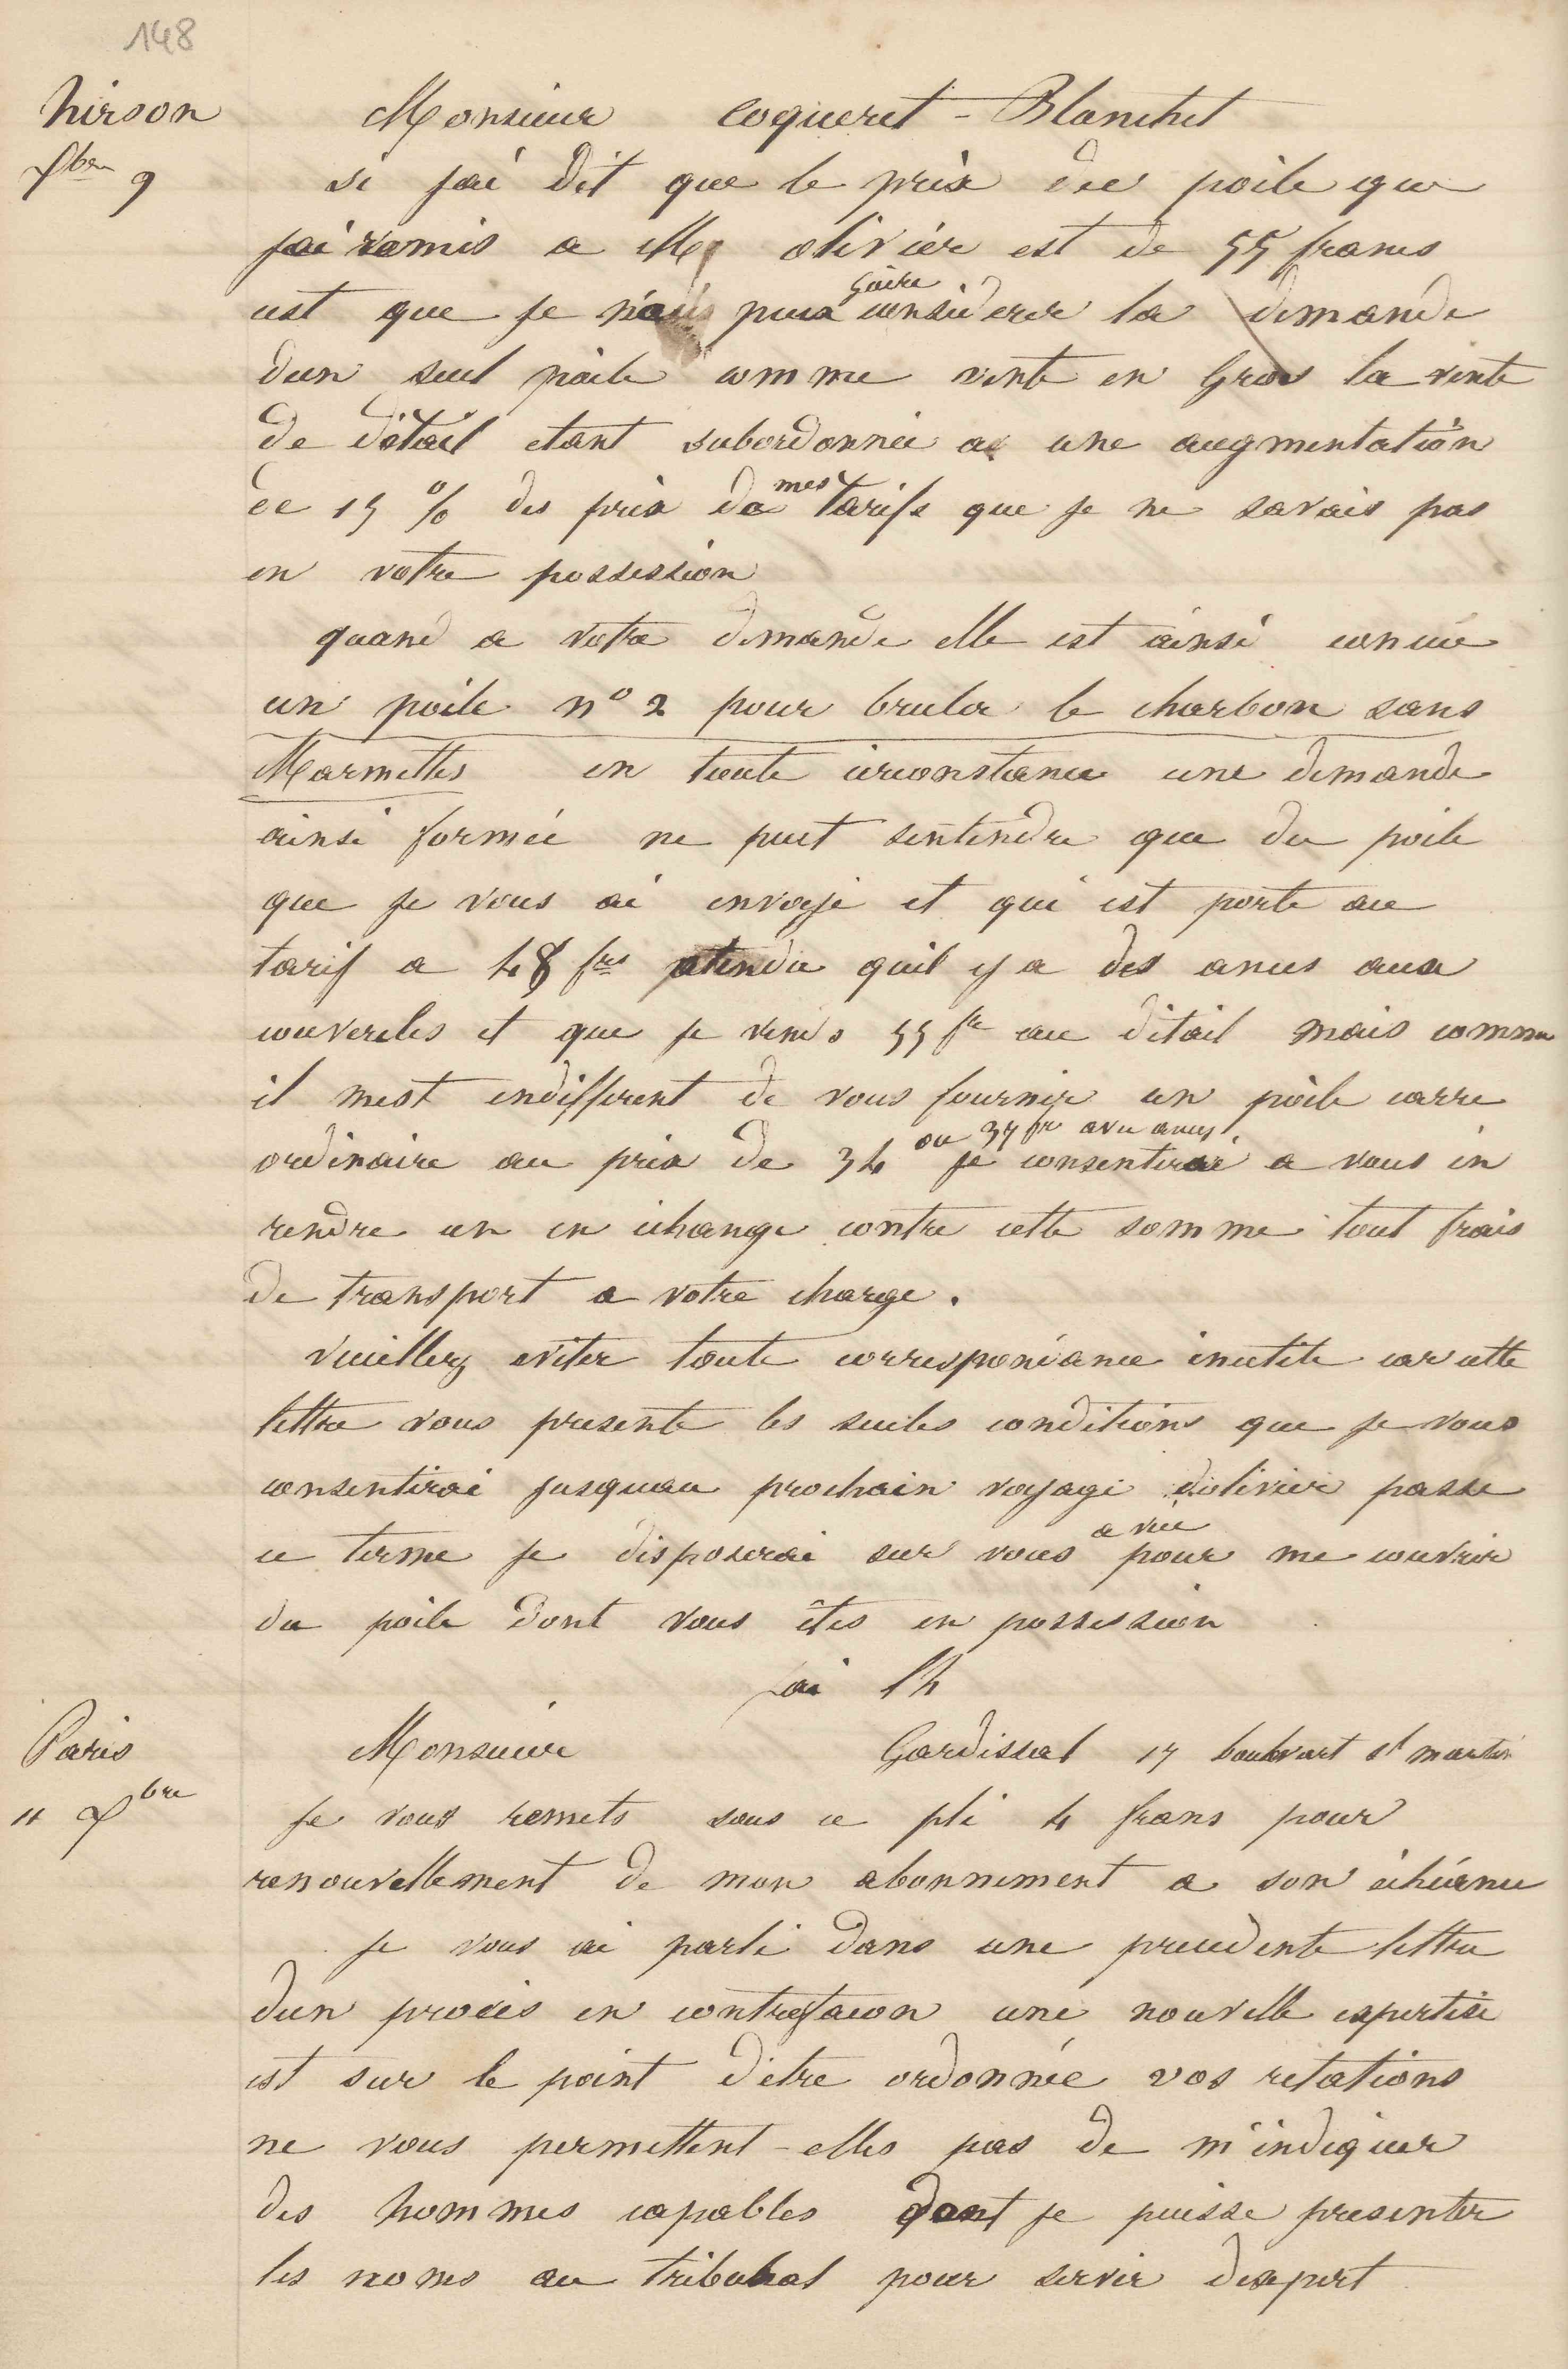 148
hirson
Xbre 9
Monsieur Coqueret - Blanchet
si jai dit que le prix du poile que
jai remis a Mr olivier est de 55 francs
cest que je n'ai puis gaire considerer la demande
dun seul poile comme vente en Gros la vente
de détail etant subordonnée a une augmentation
de 15 % des prix de mes tarifs que je ne savais pas
en votre possession
quand a votre demande elle est ainsi concue
un poile n° 2 pour bruler le charbon sans
Marmettes en toute circonstance une demande
ainsi formée ne peut sentendre que du poile
que je vous ai envoyé et qui est porte au
tarif a 48 frs atendu quil y a des ances aux
couvercles et que je vends 55 fr au détail mais comme
il mest indifferent de vous fournir un poile carre
ordinaire au prix de 34 ou 35 fr avec ances je consentirai a vous in
rendre un en échange contre cette somme tout frais
de transport a votre charge.
Veuillez eviter toute correspondance inutile car cette
lettre vous presente les seules conditions que je vous
consentirai jusquau prochain voyage dolivier passe
ce terme je disposerai sur vous a vue pour me couvrir
du poile dont vous êtes en possession
jai lh
Paris
11 Xbre
Monsieur Gardissal 17 boulevart st martin
Je vous remets sous ce pli 4 frans pour
renouvellement de mon abonnement a son echéance
je vous ai parlé dans une precedente lettre
dun procés en contrefacon une nouvelle expertise
est sur le point d'etre ordonnée vos relations
ne vous permettent-elles pas de m'indiquer
des hommes capables dont je puisse presenter
les noms au tribunal pour servir dexpert